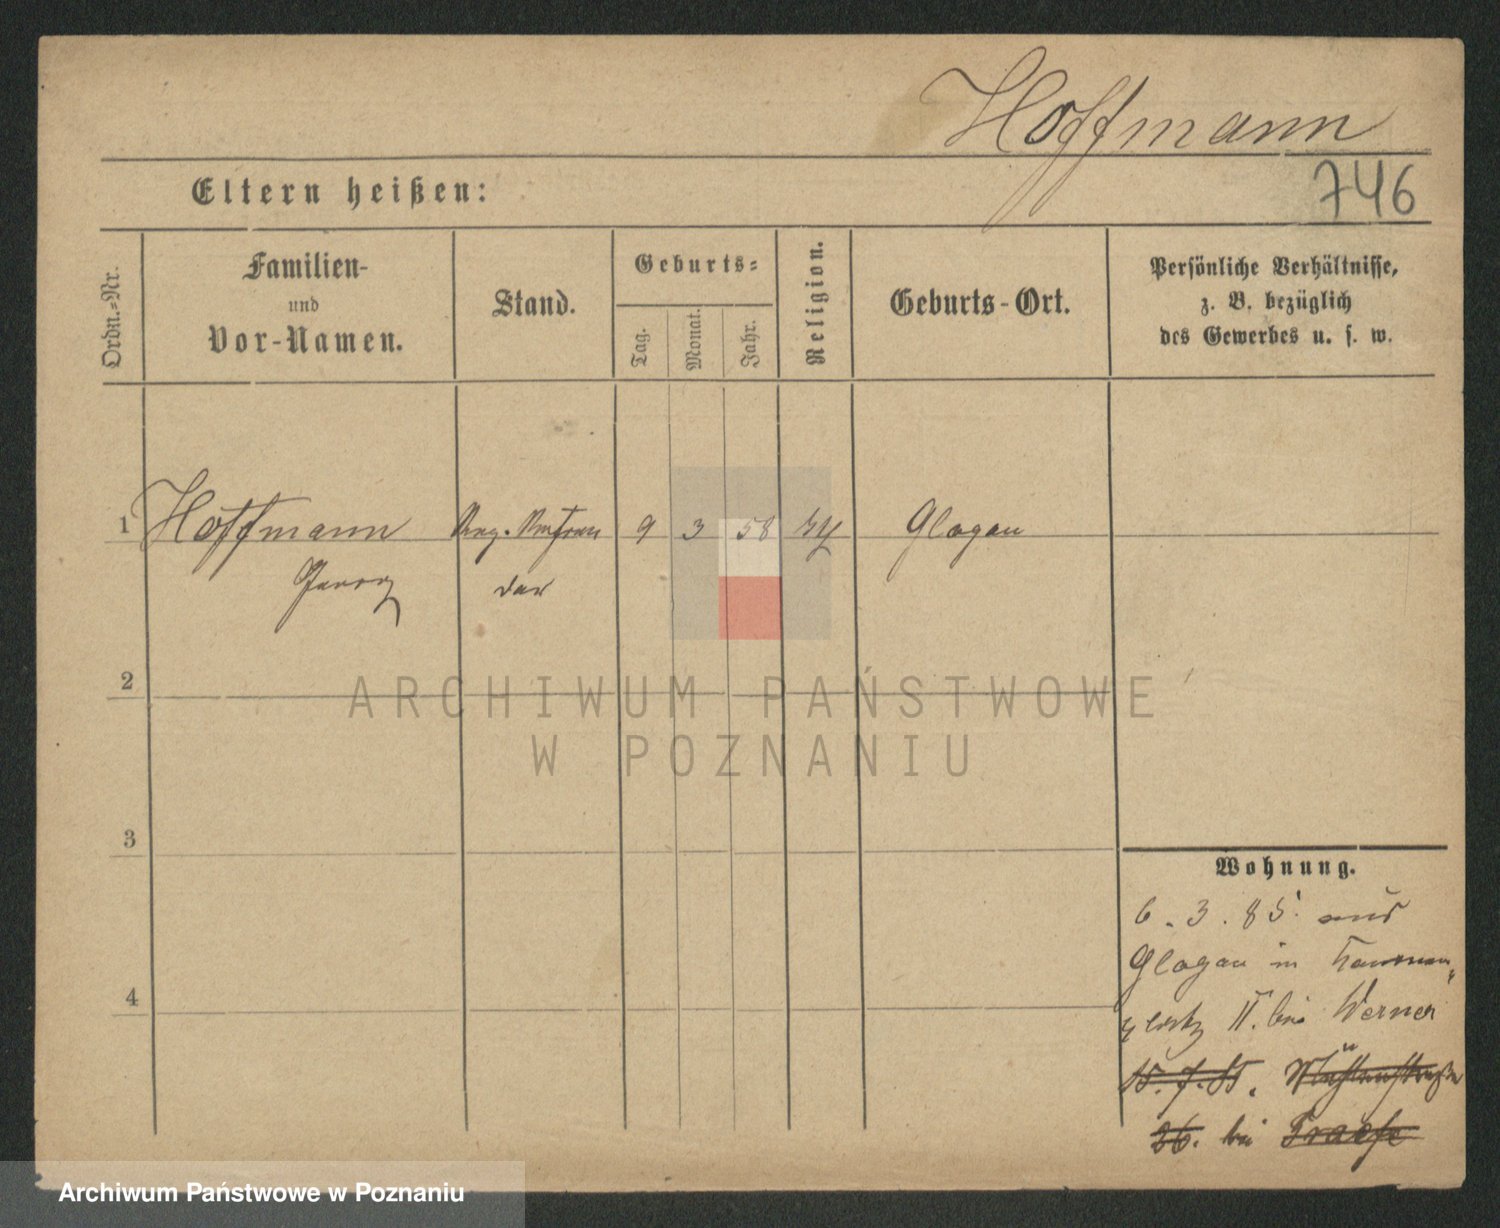 Hoffmann
746
Eltern heißen:
Ordn.-Nr.
Familien-
und
Vor-Namen.
Stand.
Geburts-
Tag.
Monat.
Jahr.
Religion.
Geburts-Ort.
Persönliche Verhältnisse,
z. B. bezüglich
des Gewerbes u. s. w.
1 Hoffmann 9 3 58 Glogau
Georg
2
ARCHIWUM PAŃSTWOWE
W POZNANIU
3
4
Wohnung.
6. 3. 85. aus
Glogau in
II. bei Werner
bei
Archiwum Państwowe w Poznaniu